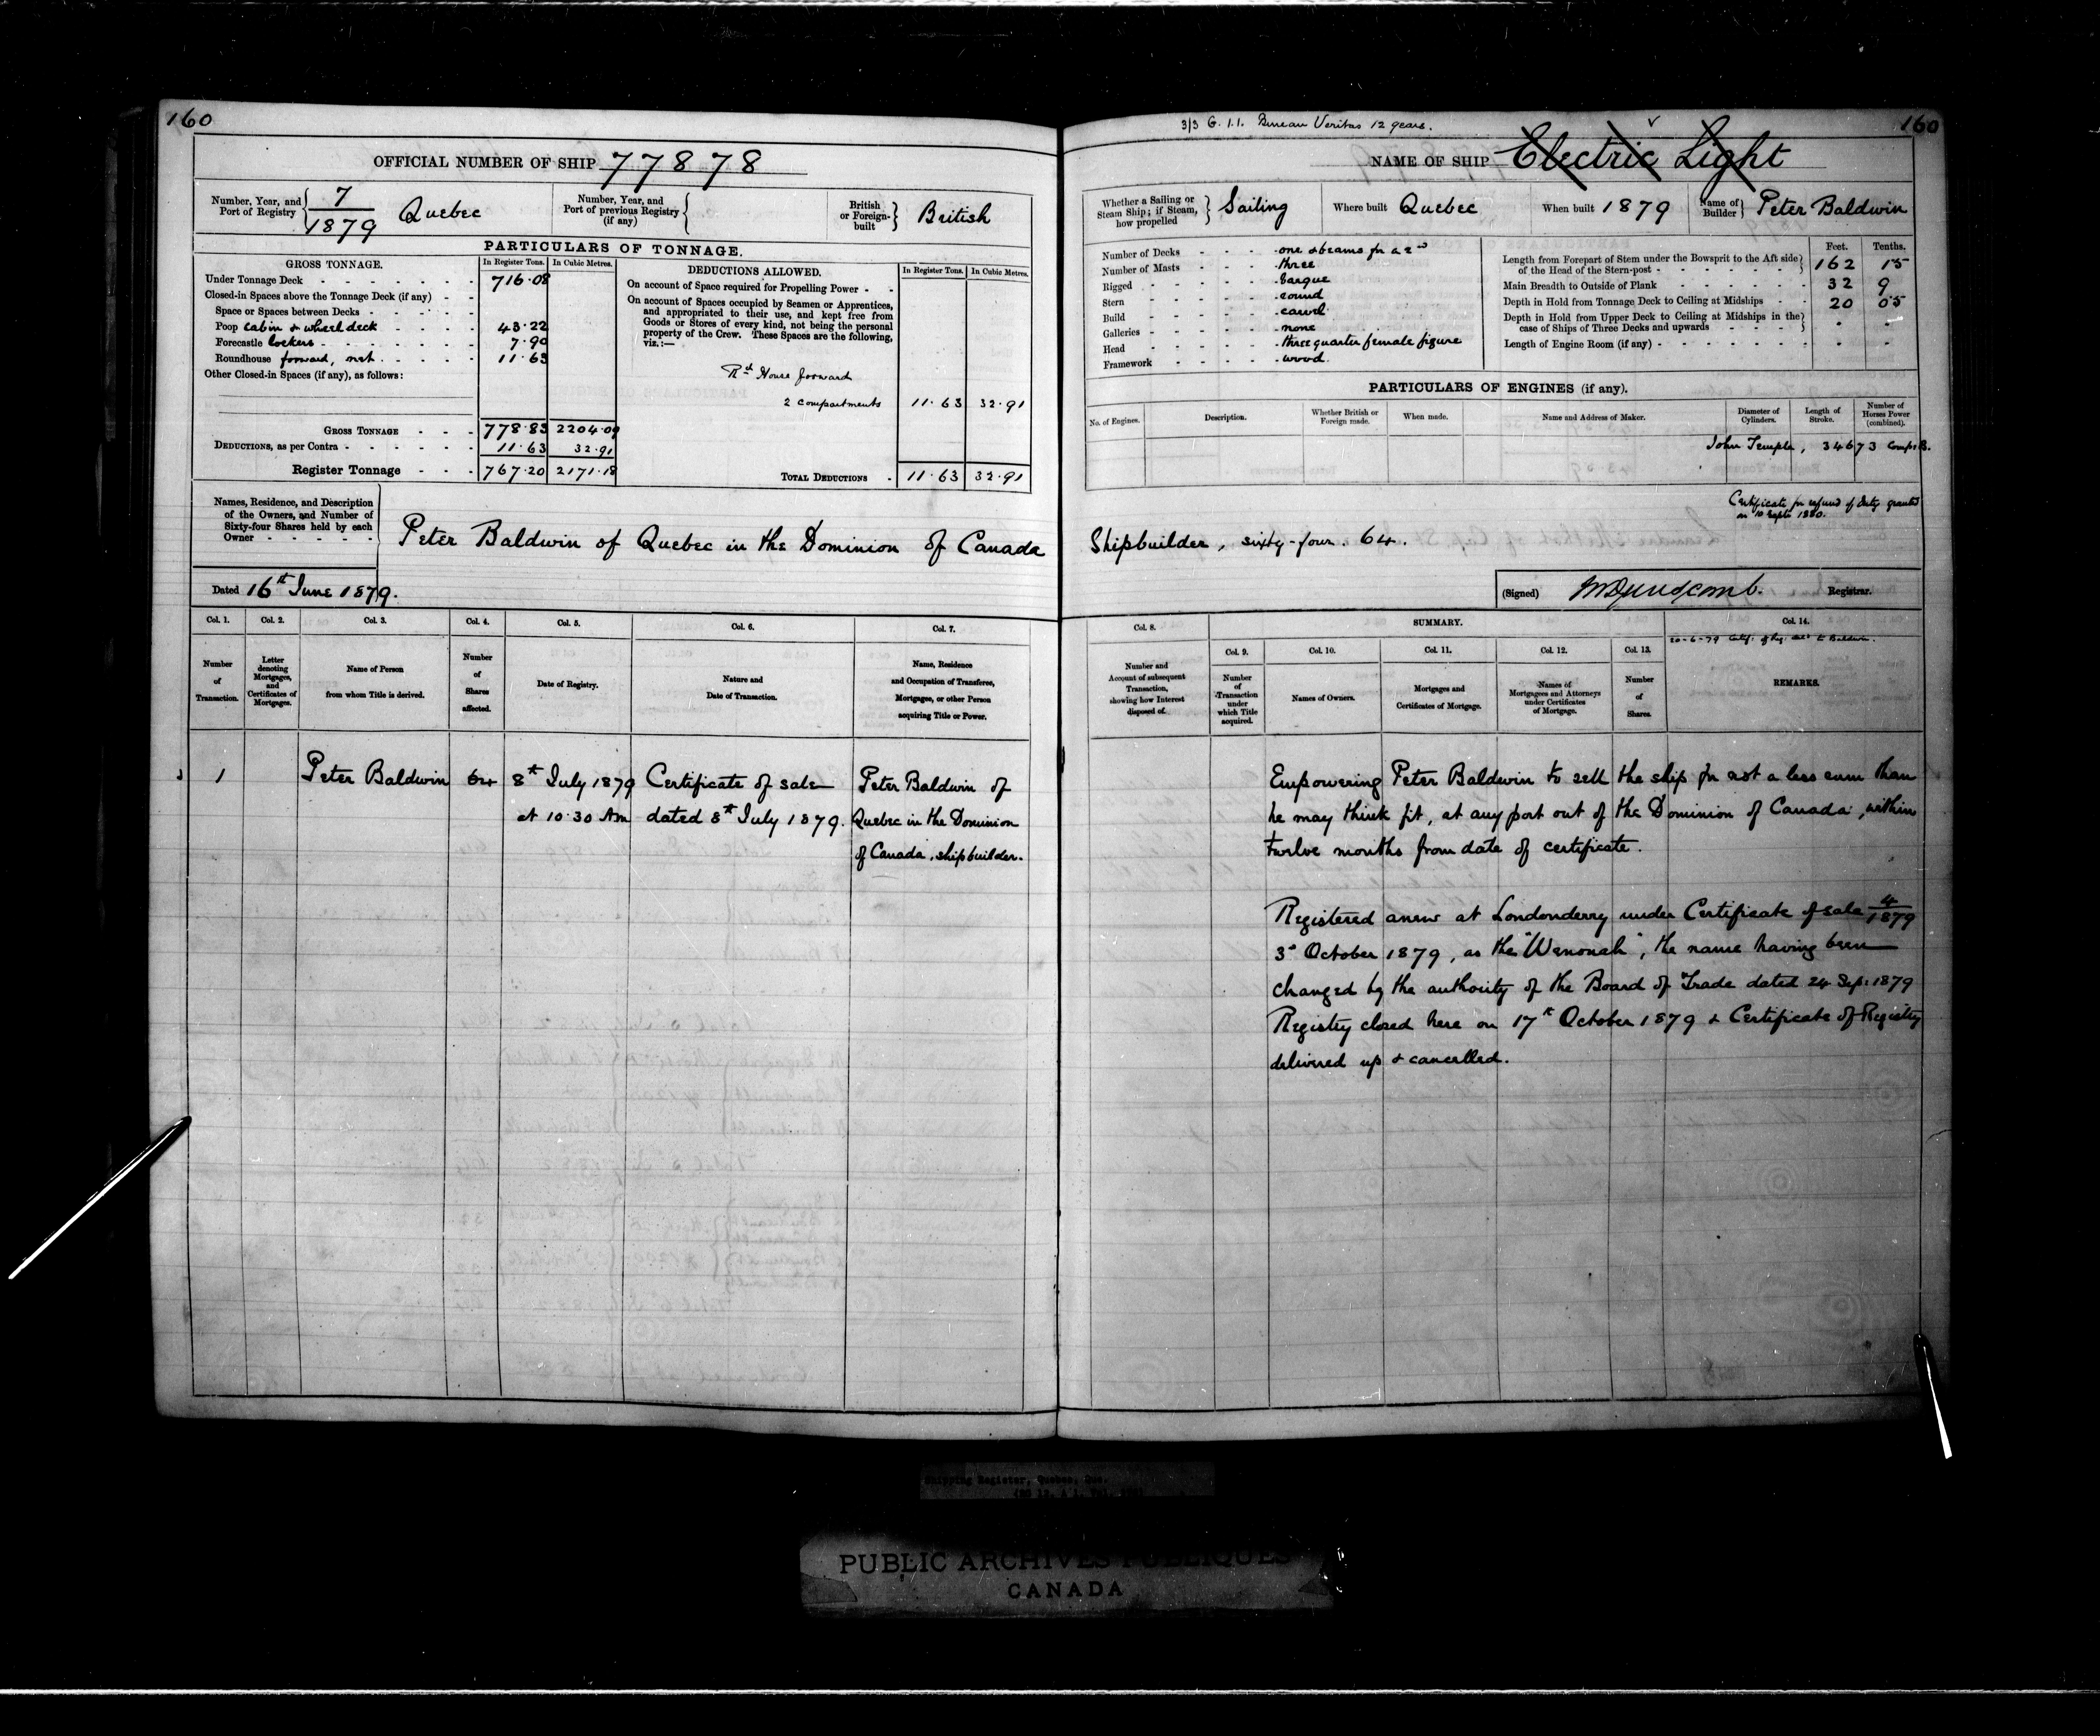 160
OFFICIAL NUMBER OF SHIP 77878
Number, Year, and Port of Registry 7/1879 Quebec
Number, Year, and Port of previous Registry (if any)
British or Foreign-built British
PARTICULARS OF TONNAGE.
GROSS TONNAGE. In Register Tons. In Cubic Metres.
Under Tonnage Deck 716.08
Closed-in Spaces above the Tonnage Deck (if any)
Space or Spaces between Decks
Poop cabin & wheel deck 43.22
Forecastle lockers 7.90
Roundhouse forward, net. 11.63
Other Closed-in Spaces (if any), as follows:
GROSS TONNAGE 778.83 2204.09
DEDUCTIONS, as per Contra 11.63 32.91
Register Tonnage 767.20 2171.18
DEDUCTIONS ALLOWED. In Register Tons. In Cubic Metres.
On account of Space required for Propelling Power
On account of Spaces occupied by Seamen or Apprentices,
and appropriated to their use, and kept free from
Goods or Stores of every kind, not being the personal
property of the Crew. These Spaces are the following,
viz.:—
Rd House forward
2 compartments 11.63 32.91
TOTAL DEDUCTIONS 11.63 32.91
Names, Residence, and Description
of the Owners, and Number of
Sixty-four Shares held by each
Owner
Peter Baldwin of Quebec in the Dominion of Canada
Dated 16th June 1879.
Col. 1. Col. 2. Col. 3. Col. 4. Col. 5. Col. 6. Col. 7.
Number of Transaction.
Letter denoting Mortgages, and Certificates of Mortgages.
Name of Person from whom Title is derived.
Number of Shares affected.
Date of Registry.
Nature and Date of Transaction.
Name, Residence and Occupation of Transferee, Mortgagee, or other Person acquiring Title or Power.
1 Peter Baldwin 64 8th July 1879 Certificate of sale Peter Baldwin of
at 10.30 Am dated 8th July 1879. Quebec in the Dominion
of Canada, shipbuilder.
3/3 G. 1.1. Bureau Veritas 12 years.
160
NAME OF SHIP Electric Light
Whether a Sailing or Steam Ship; if Steam, how propelled Sailing
Where built Quebec
When built 1879
Name of Builder Peter Baldwin
Number of Decks one & beams for a 2nd
Number of Masts three
Rigged barque
Stern round
Build carvel
Galleries none
Head three quarter female figure
Framework wood
Feet. Tenths.
Length from Forepart of Stem under the Bowsprit to the Aft side
of the Head of the Stern-post 162 15
Main Breadth to Outside of Plank 32 9
Depth in Hold from Tonnage Deck to Ceiling at Midships 20 05
Depth in Hold from Upper Deck to Ceiling at Midships in the
case of Ships of Three Decks and upwards
Length of Engine Room (if any)
PARTICULARS OF ENGINES (if any).
No. of Engines. Description. Whether British or Foreign made. When made. Name and Address of Maker. Diameter of Cylinders. Length of Stroke. Number of Horses Power (combined).
John Temple, 34673
Certificate for refund of Duty granted
on 10 Sept 1880.
Shipbuilder, sixty-four. 64.
(Signed) Registrar.
Col. 8. SUMMARY. Col. 14.
20-6-79 Certf. of Reg. to Baldwin.
Col. 9. Col. 10. Col. 11. Col. 12. Col. 13.
Number and Account of subsequent Transaction, showing how Interest disposed of.
Number of Transaction under which Title acquired.
Names of Owners.
Mortgages and Certificates of Mortgage.
Names of Mortgagees and Attorneys under Certificates of Mortgage.
Number of Shares.
REMARKS.
Empowering Peter Baldwin to sell the ship for not a less sum than
he may think fit, at any port out of the Dominion of Canada, within
twelve months from date of certificate.
Registered anew at Londonderry under Certificate of sale 4/1879
3d October 1879, as the "Wenonah", the name having been
changed by the authority of the Board of Trade dated 24 Sep: 1879
Registry closed here on 17th October 1879 & Certificate of Registry
delivered up & cancelled.
Shipping Register, Quebec, Que.
PUBLIC ARCHIVES PUBLIQUES
CANADA